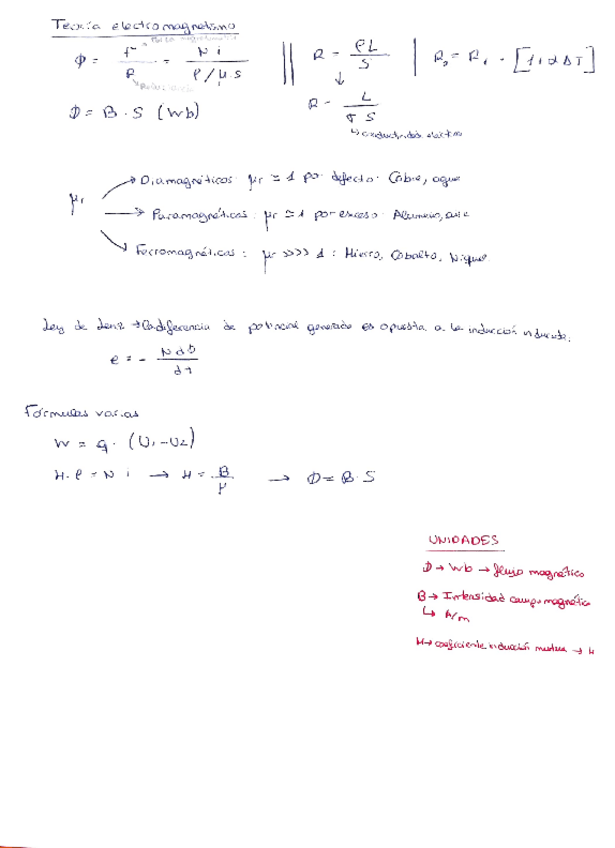 Teoría electromagnetismo
Φ = F / R = N i / l / μ · s
R = ρL / S
R = L / σ S
↳ conductividad eléctrica
R₂ = R₁ · [1 + α ΔT]
Φ = B · S (Wb)
μr
→ Diamagnéticos: μr ≃ 1 por defecto: Cobre, agua
→ Paramagnéticas: μr ≃ 1 por exceso: Aluminio, aire
→ Ferromagnéticas: μr >>>> 1: Hierro, Cobalto, Niquel
Ley de Lenz → La diferencia de potencial generada es opuesta a la inducción inducida.
e = - N dΦ / dt
Fórmulas varias
W = q · (U₁ - U₂)
H · l = N i → H = B / μ → Φ = B · S
UNIDADES
Φ → Wb → flujo magnético
B → Intensidad campo magnético
↳ A/m
M → coeficiente inducción mutua → H